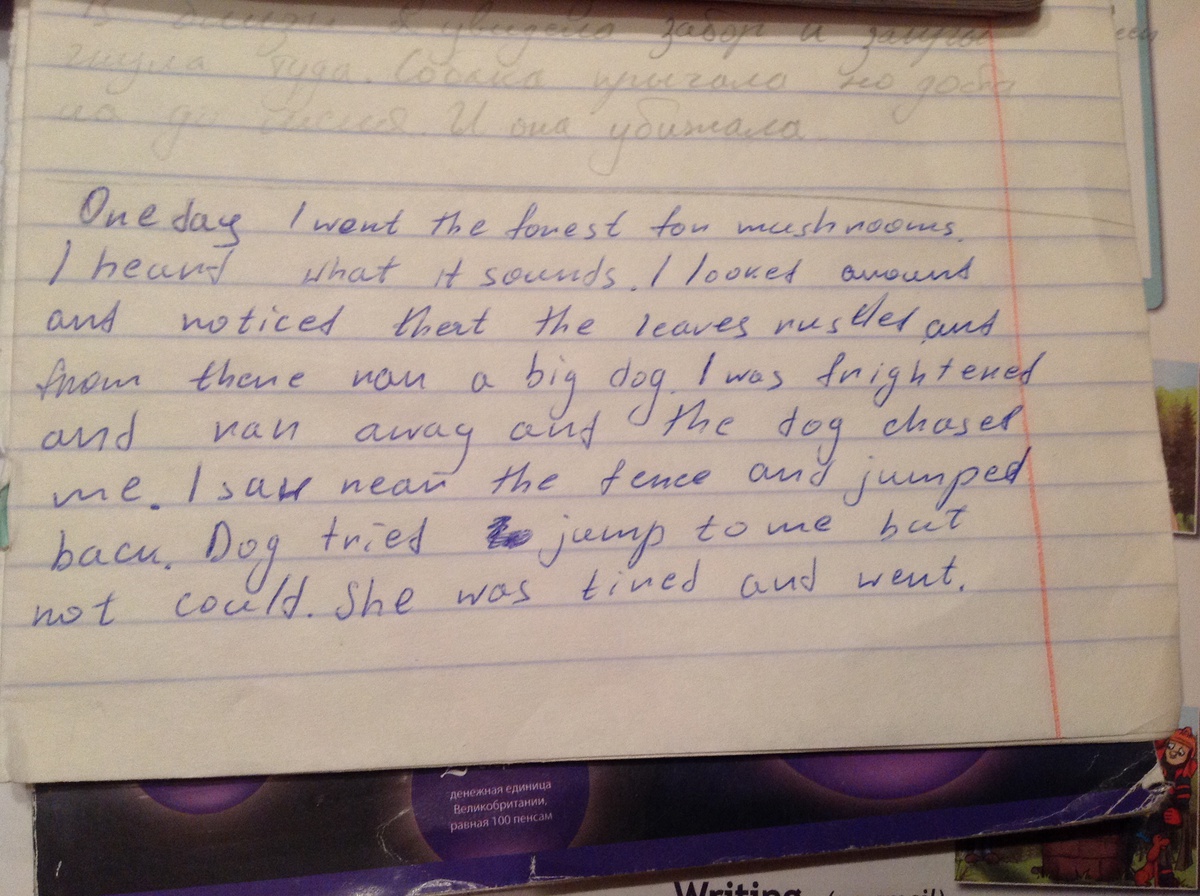 В близи я увидела забор и запры
гнула туда. Собака прыгала но
на до меня. И она убижала.
One day I went the forest for mushrooms.
I heard what it sounds. I looked around
and noticed that the leaves rustled and
from there ran a big dog. I was frightened
and ran away and the dog chased
me. I saw near the fence and jumped
back. Dog tried jump to me but
not could. She was tired and went.
денежная единица
Великобритании,
равная 100 пенсам
Writing